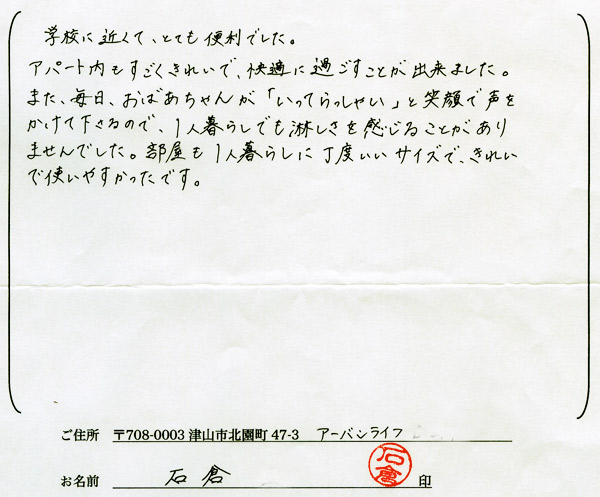 学校に近くて、とても便利でした。
アパート内もすごくきれいで、快適に過ごすことが出来ました。
また、毎日、おばあちゃんが「いってらっしゃい」と笑顔で声を
かけて下さるので、1人暮らしでも淋しさを感じることがあり
ませんでした。部屋も1人暮らしに丁度いいサイズで、きれい
で使いやすかったです。
ご住所 〒708-0003 津山市北園町 47-3 アーバンライフ
お名前 石倉 石倉 印